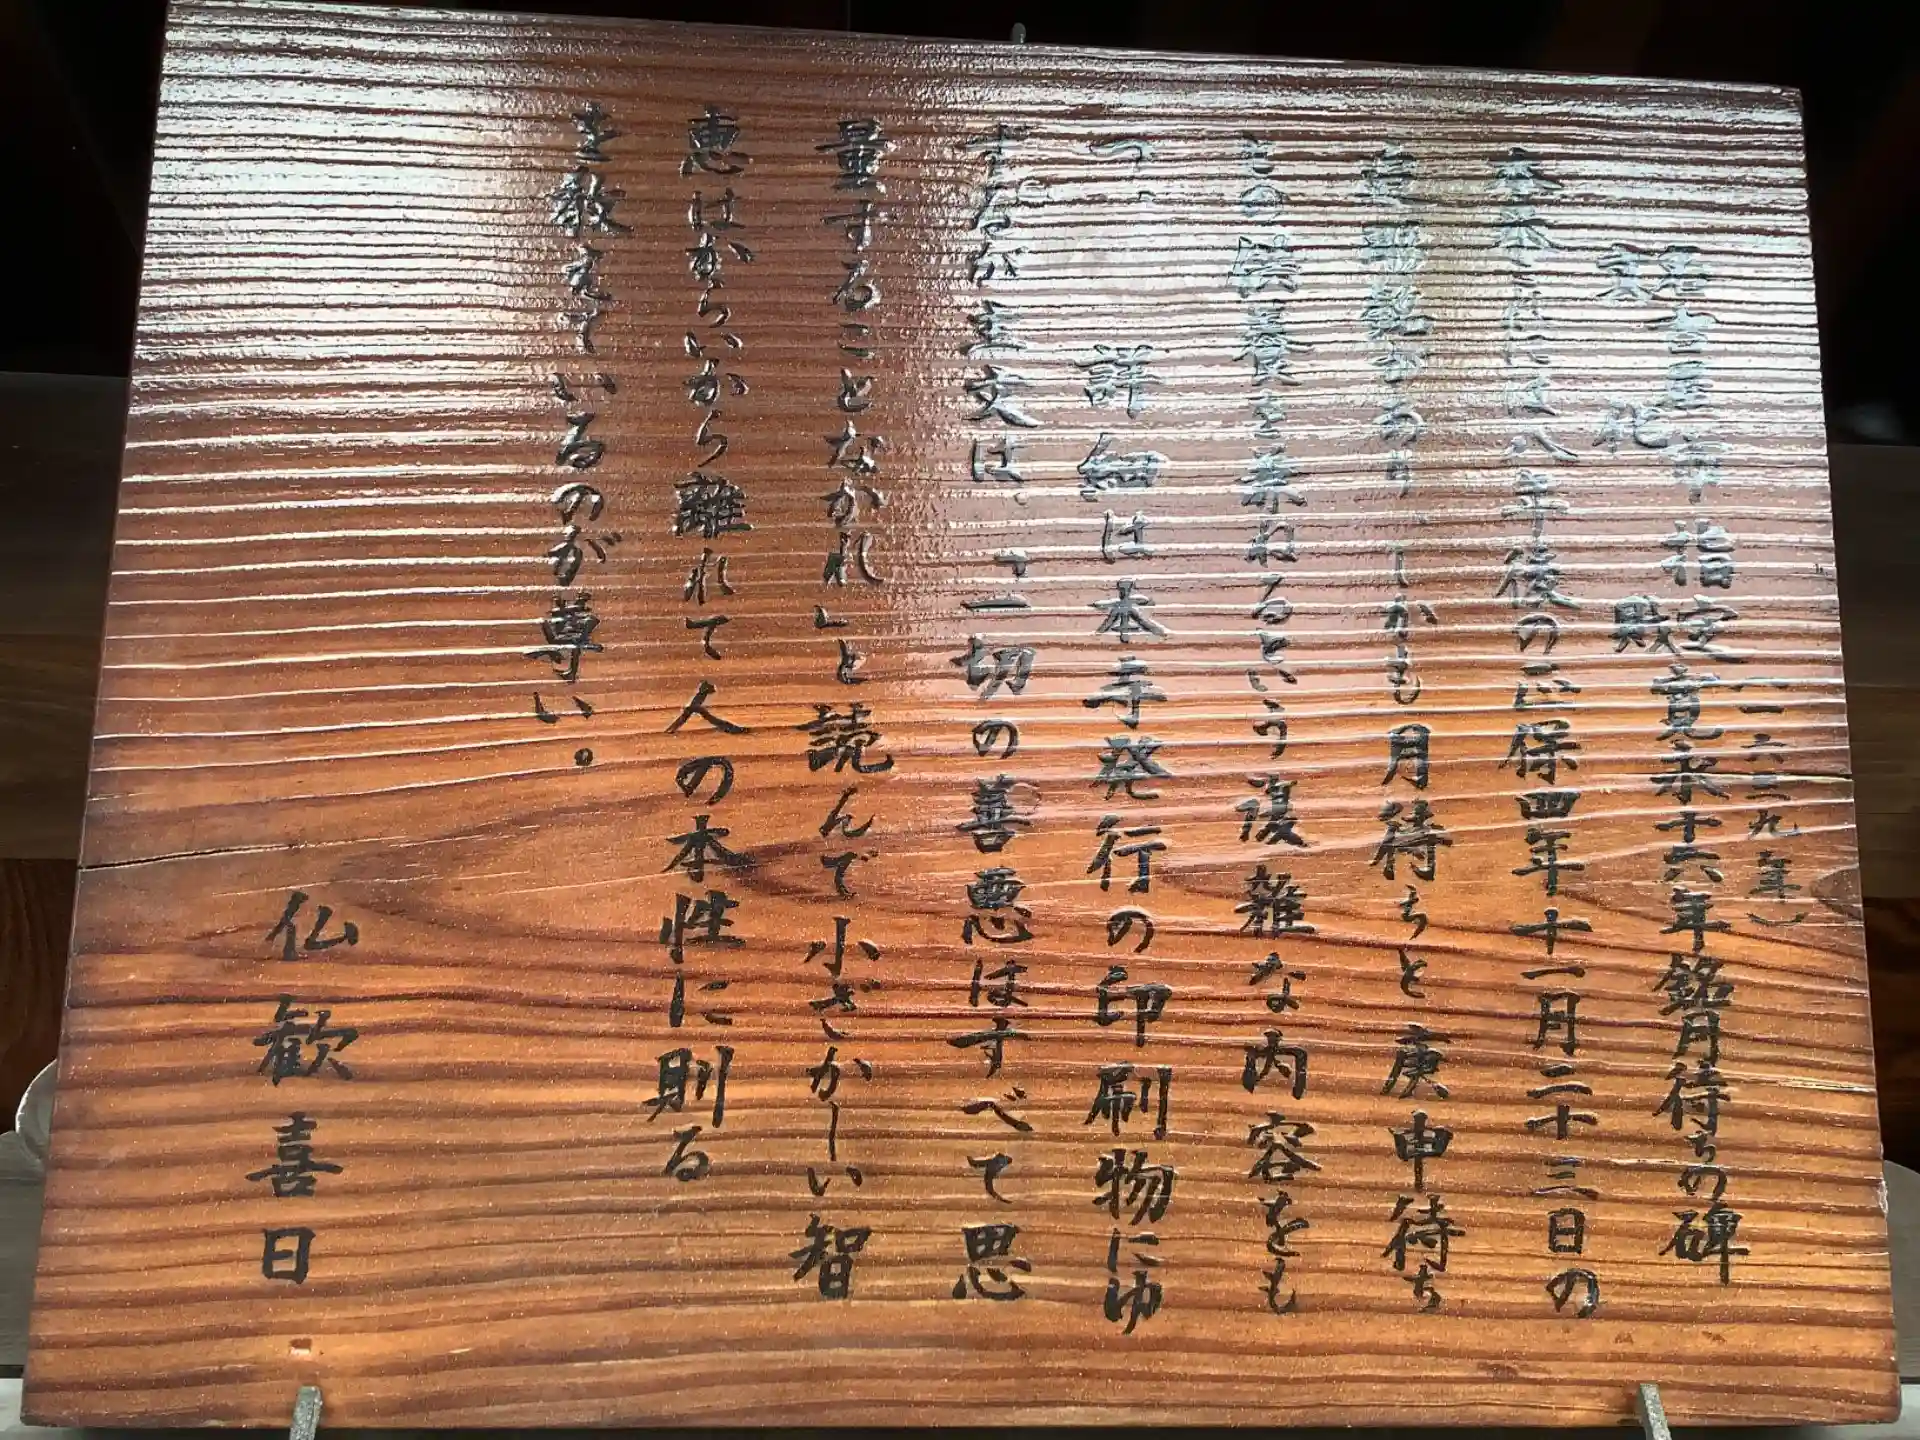 名古屋市指定 寛永十六年銘月待ちの碑
(一六三九年)
文化財
には八年後の正保四年十一月二十三日の
追彫銘があり、しかも月待ちと庚申待ち
との供養を兼ねるという複雑な内容をも
つ。詳細は本寺発行の印刷物にゆ
ずるが主文は、「一切の善悪はすべて思
量することなかれ」と読んで小ざかしい智
恵はからいから離れて人の本性に則る
を教えているのが尊い。
仏歓喜日